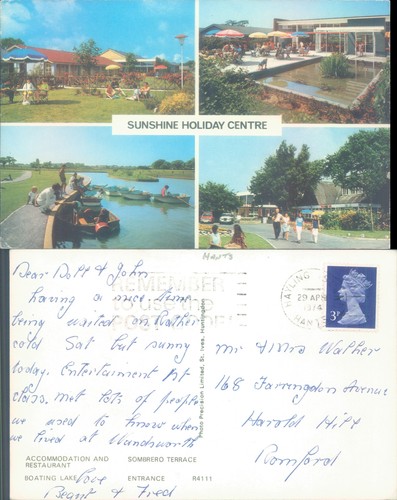 SUNSHINE HOLIDAY CENTRE
Hants
Dear Doll & John
having a nice time
being waited on. Rather
cold Sat but sunny
today. Entertainment 1st
class. met lots of people
we used to know when
we lived at Wandsworth
love
Beattie & Fred
REMEMBER
to use the
POSTCODE
HAYLING
29 APR
1974
HANTS
3P
Mr & Mrs Walher
168 Farringdon Avenue
Harold Hill
Romford
Photo Precision Limited, St. Ives, Huntingdon
ACCOMMODATION AND SOMBRERO TERRACE
RESTAURANT
BOATING LAKE ENTRANCE R4111